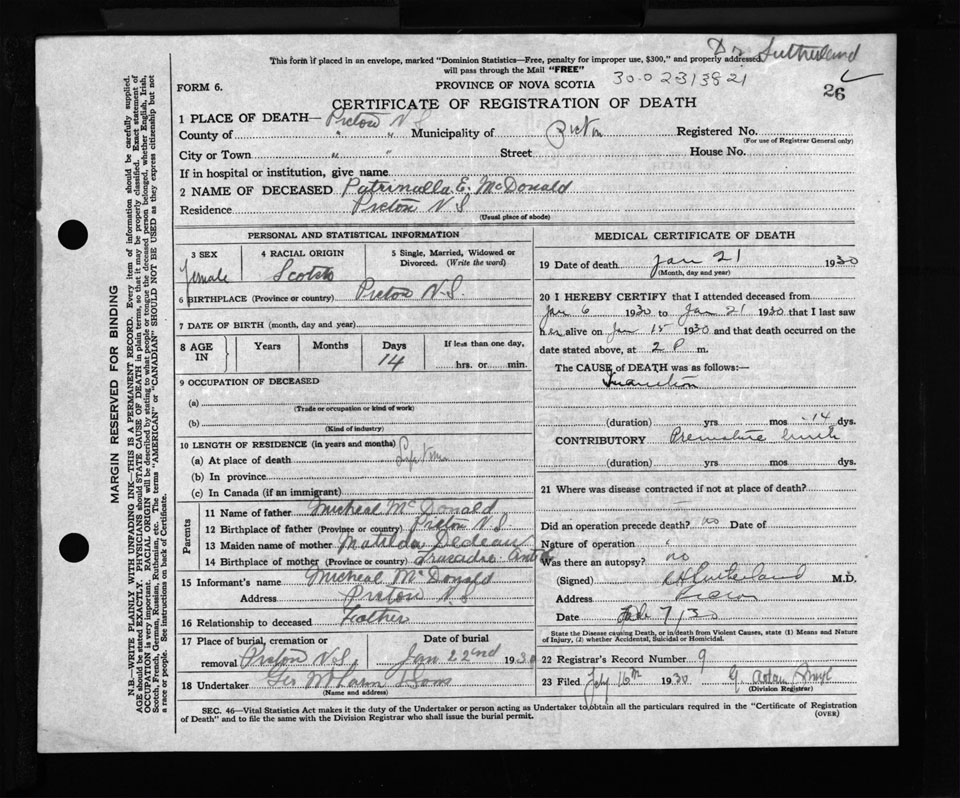 Dr Sutherland
This form if placed in an envelope, marked "Dominion Statistics—Free, penalty for improper use, $300," and properly addressed
will pass through the Mail "FREE"
30-0 23/3821
26
FORM 6.
PROVINCE OF NOVA SCOTIA
CERTIFICATE OF REGISTRATION OF DEATH
1 PLACE OF DEATH— Pictou N S
County of " " Municipality of Pictou Registered No.
(For use of Registrar General only)
City or Town " " Street House No.
If in hospital or institution, give name
2 NAME OF DECEASED Patrinalla E. McDonald
Residence Pictou N S
(Usual place of abode)
PERSONAL AND STATISTICAL INFORMATION
3 SEX 4 RACIAL ORIGIN 5 Single, Married, Widowed or Divorced. (Write the word)
female Scotch
6 BIRTHPLACE (Province or country) Pictou N.S.
7 DATE OF BIRTH (month, day and year)
8 AGE IN Years Months Days If less than one day,
14 hrs. or min.
9 OCCUPATION OF DECEASED
(a)
(Trade or occupation or kind of work)
(b)
(Kind of industry)
10 LENGTH OF RESIDENCE (in years and months)
(a) At place of death
(b) In province
(c) In Canada (if an immigrant)
Parents
11 Name of father Micheal McDonald
12 Birthplace of father (Province or country) Pictou N S
13 Maiden name of mother Matilda Dedeau
14 Birthplace of mother (Province or country) Tracadie
15 Informant's name Micheal McDonald
Address Pictou N S
16 Relationship to deceased Father
17 Place of burial, cremation or Date of burial
removal Pictou N.S. Jan 22nd 1930
18 Undertaker Sons
(Name and address)
MEDICAL CERTIFICATE OF DEATH
19 Date of death Jan 21 1930
(Month, day and year)
20 I HEREBY CERTIFY that I attended deceased from
Jan 6 1930 to Jan 21 1930 that I last saw
her alive on Jan 15 1930 and that death occurred on
date stated above, at 2 P m.
The CAUSE of DEATH was as follows:—
Inanition
(duration) yrs mos 14 dys.
CONTRIBUTORY Premature birth
(duration) yrs mos dys.
21 Where was disease contracted if not at place of death?
Did an operation precede death? no Date of
Nature of operation
Was there an autopsy? no
(Signed) Sutherland M.D.
Address Pictou
Date Feb 7/30
State the Disease causing Death, or in death from Violent Causes, state (1) Means and Nature
of Injury, (2) whether Accidental, Suicidal or Homicidal.
22 Registrar's Record Number 9
23 Filed Feby 16th 1930 G. Adam
(Division Registrar)
SEC. 46—Vital Statistics Act makes it the duty of the Undertaker or person acting as Undertaker to obtain all the particulars required in the "Certificate of Registration
of Death" and to file the same with the Division Registrar who shall issue the burial permit.
(OVER)
MARGIN RESERVED FOR BINDING
N.B.—WRITE PLAINLY WITH UNFADING INK—THIS IS A PERMANENT RECORD. Every item of information should be carefully supplied.
AGE should be stated EXACTLY. PHYSICIANS should STATE CAUSE OF DEATH in plain terms, so that it may be properly classified. Exact statement of
OCCUPATION is very important. RACIAL ORIGIN will be described by stating to what people or tongue the deceased person belonged, whether English, Irish,
Scotch, French, German, Russian, Ruthenian, etc. The terms "AMERICAN" or "CANADIAN" SHOULD NOT BE USED as they express citizenship but not
a race or people. See instructions on back of Certificate.